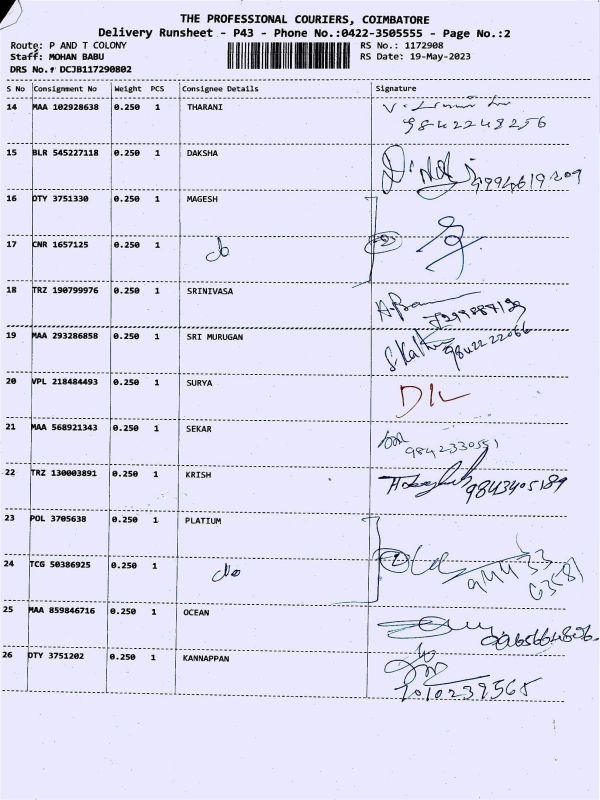 THE PROFESSIONAL COURIERS, COIMBATORE
Delivery Runsheet - P43 - Phone No.:0422-3505555 - Page No.:2
Route: P AND T COLONY RS No.: 1172908
Staff: MOHAN BABU RS Date: 19-May-2023
DRS No.: DCJB117290802
S No Consignment No Weight PCS Consignee Details Signature
14 MAA 102928638 0.250 1 THARANI
9842248256
15 BLR 545227118 0.250 1 DAKSHA
16 DTY 3751330 0.250 1 MAGESH
17 CNR 1657125 0.250 1 do
18 TRZ 190799976 0.250 1 SRINIVASA
19 MAA 293286858 0.250 1 SRI MURUGAN
9842222066
20 VPL 218484493 0.250 1 SURYA
21 MAA 568921343 0.250 1 SEKAR
9842330551
22 TRZ 130003891 0.250 1 KRISH 9843405189
23 POL 3705638 0.250 1 PLATIUM
24 TCG 50386925 0.250 1 do 94433
63581
25 MAA 859846716 0.250 1 OCEAN
26 DTY 3751202 0.250 1 KANNAPPAN